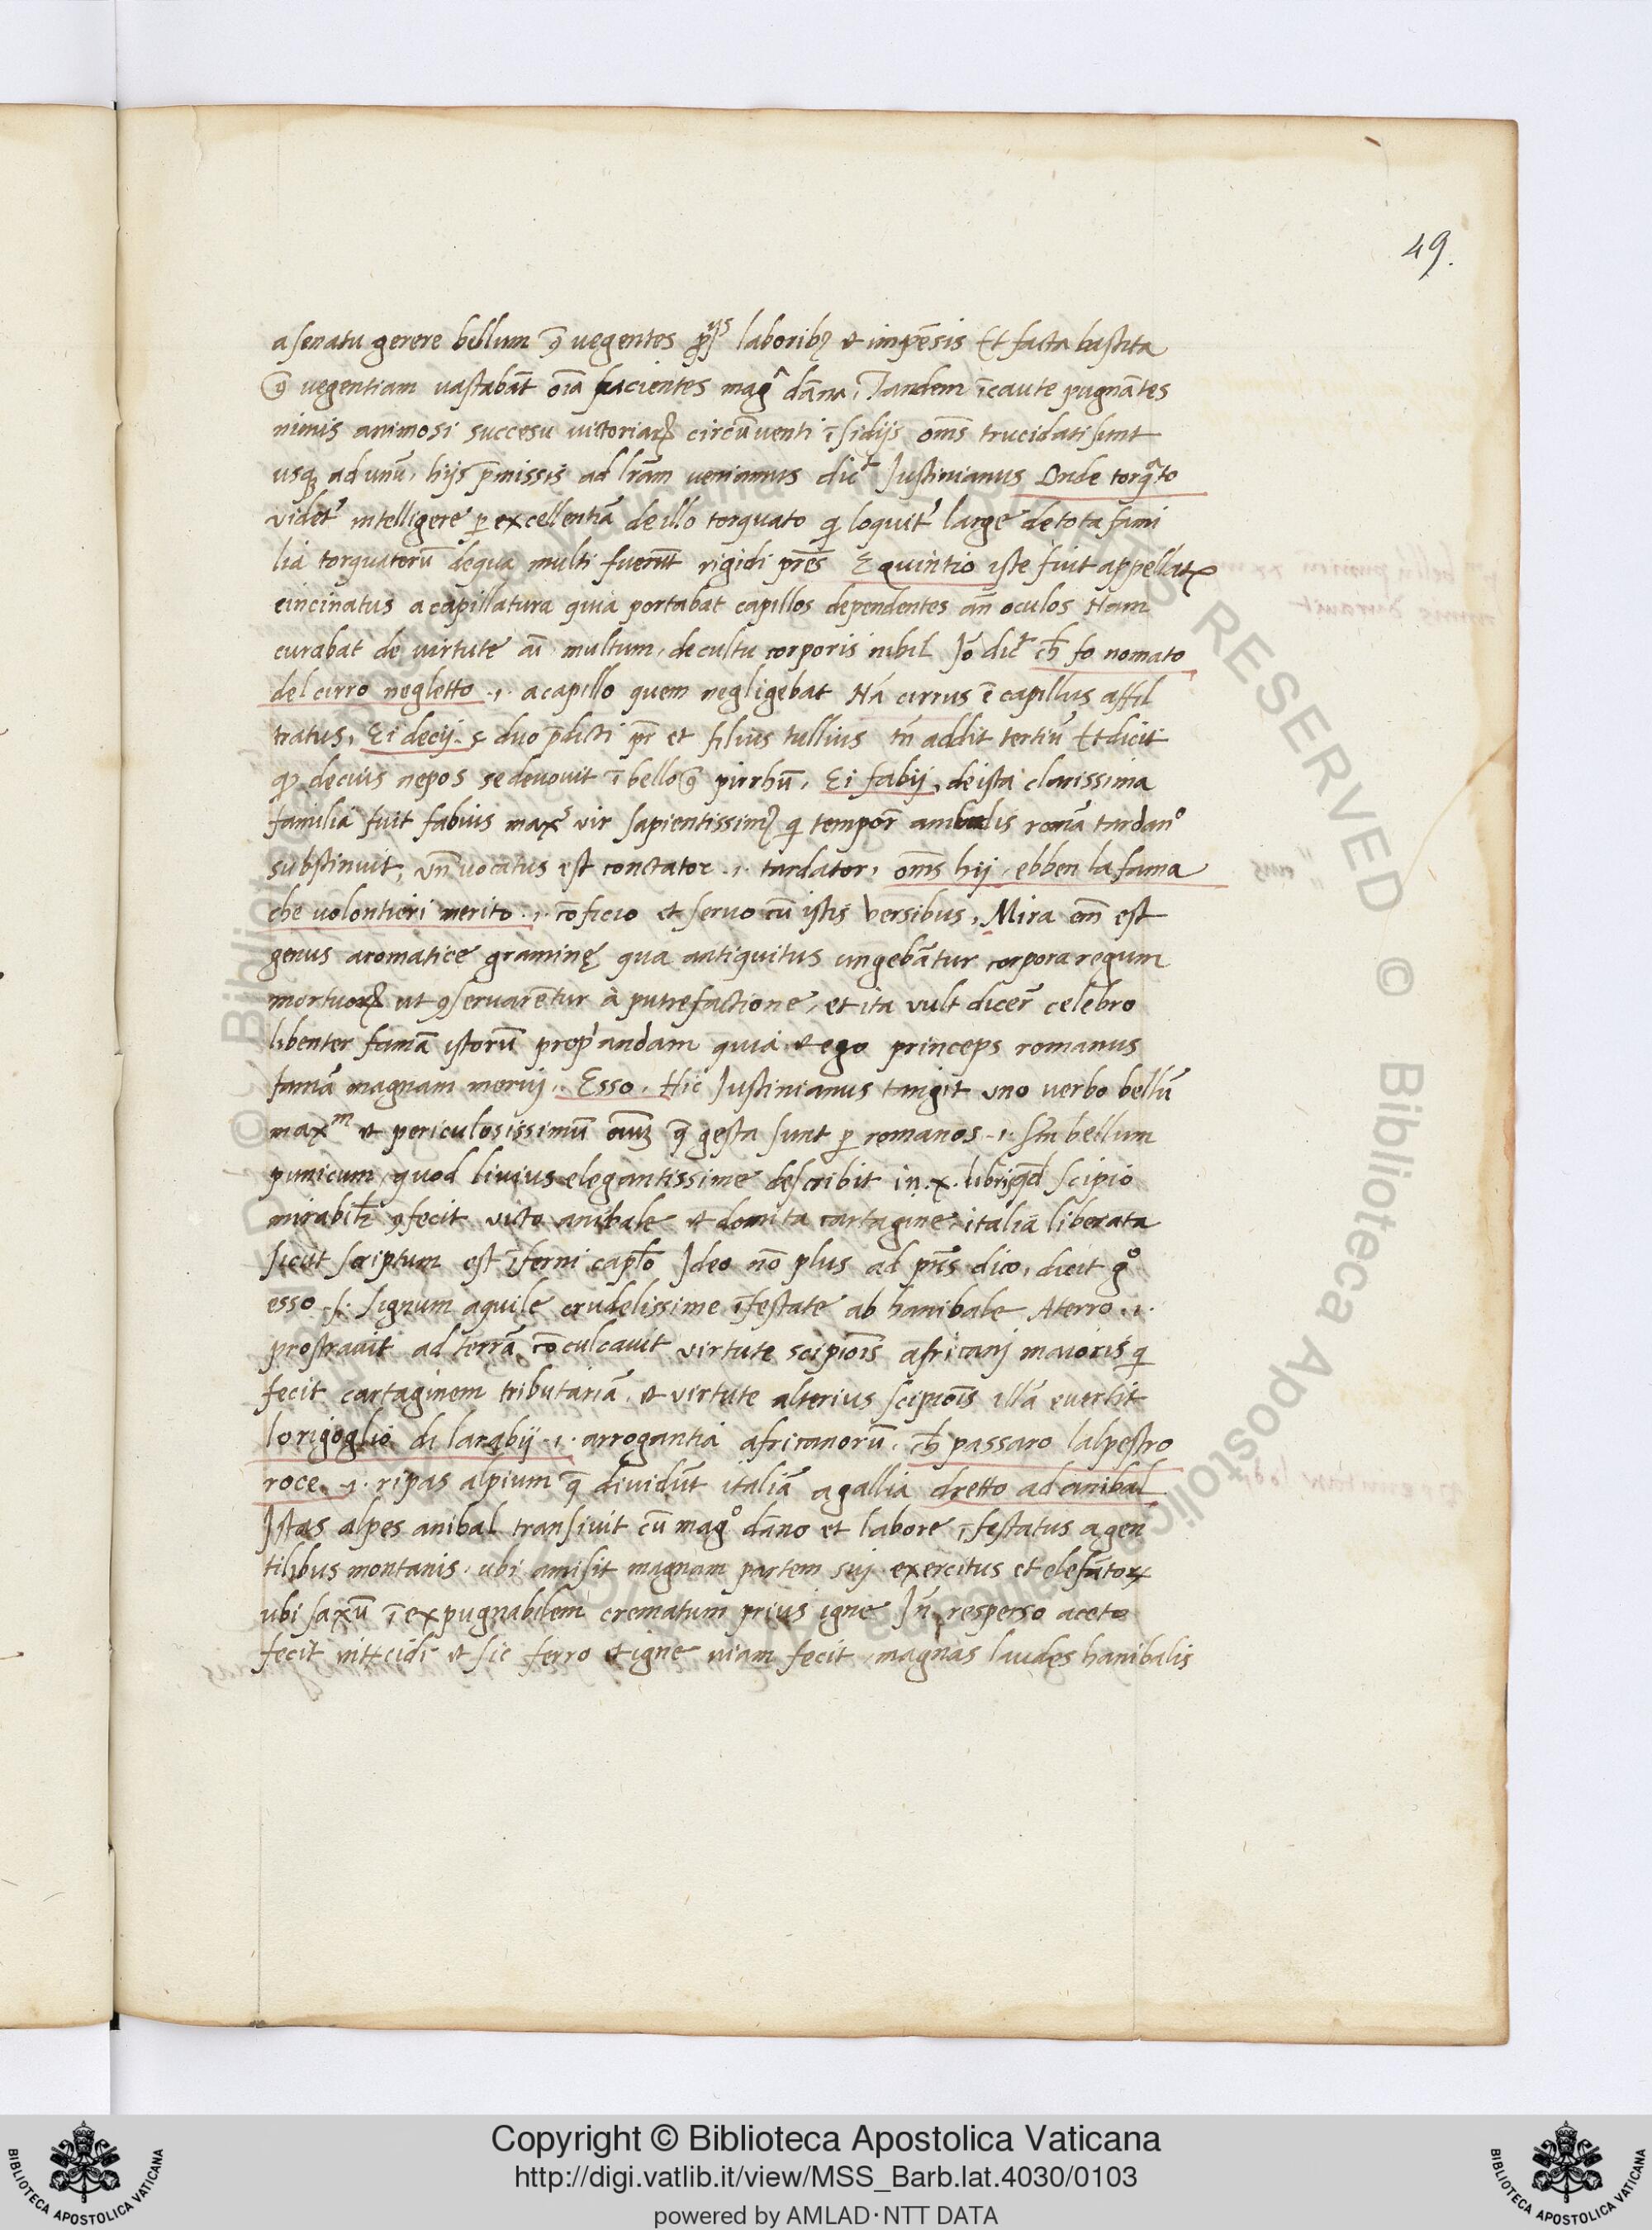 49.
a senatu gerere bellum ꝯ̃ uegentes ꝓpijs laboribꝫ & impēsis Et facta bastita
ꝯ̃ uegentiam uastabāt oīa facientes magᵃ dāna, Tandem ĩcaute pugnātes
nimis animosi succesu victoriaꝝ circūuenti ĩsidijs oms̄ trucidati sunt
usqꝫ ad unū, hijs p̄missis ad lr̄am veniamus dicᵗ Justinianus Onde torqᵃto
videtʳ intelligere p excellentiā de illo torquato qͥ loquitʳ large de tota fami
lia torquatorū de qua multi fuerūt rigidi pr̄es E quintio iste fuit appellatꝰ
cincinatus a capillatura quia portabat capillos dependentes an̄ oculos Nam
curabat de virtute aī multum, de cultu corporis nihil Jō dicᵗ ch̄ fo nomato
del cirro negletto .i. a capillo quem negligebat Nā cirrus ē capillus affil
tratus, Ei decij .s. duo p̄dicti pr̄ et filius tullius tn̄ addit tertiū Et dicit
qꝫ decius nepos se devovit ĩ bello ꝯ̃ pirrhū, Ei fabij, de ista clarissima
familia fuit fabius maxˢ vir sapientissimꝫ qͥ tempor̄ anibalis romā tardanᵒ
substinuit, vn̄ vocatus est conctator .i. tardator, oms̄ hij, ebben la fama
che volontieri merito .i. cōficio et servo cū istis versibus, Mira em̄ est
genus aromatice graminę qua antiquitus ungebātur corpora regum
mortuoꝝ ut ꝯservarētur a putrefactione, et ita vult dicer̄ celebro
libenter famā istorū prop̍andam quia & ego princeps romanus
famā magnam merui, Esso, Hic Justinianus tangit uno verbo bellū
maxᵐ & periculosissimū omniū q̄ gesta sunt p romanos .i. scd̄m bellum
punicum, quod livius elegantissime describit in .x. libris qd̄ scipio
mirabilr̄ ꝯfecit victo anibale & domita cartagine, italia liberata
sicut scriptum est ĩferni capl̄o Jdeo nō plus ad pn̄s dico, dicit gᵒ
esso .s. signum aquile crudelissime ĩfestate ab hanibale Aterro .i.
prostravit ad terrā cōculcavit virtute scipiōis africani maioris qͥ
fecit cartaginem tributariā, & virtute alterius scipiōis illā evertit
lorigoglio di larabij .i. arrogantia africanorū, ch̄ passaro lalpestro
roce .i. ripas alpium q̄ dividūt italiā a gallia dretto ad anibal
Jstas alpes anibal transivit cū magᵒ dāno et labore, ĩfestatus a gen
tilibus montanis, ubi amisit magnam partem sui exercitus et elefātoꝝ
ubi saxū ĩexpugnabilem crematum prius igne Jn̄ resperso aceto
fecit & sic ferro & igne viam fecit, magnas laudes hanibalis
Copyright © Biblioteca Apostolica Vaticana
http://digi.vatlib.it/view/MSS_Barb.lat.4030/0103
powered by AMLAD·NTT DATA
BIBLIOTECA APOSTOLICA VATICANA
BIBLIOTECA APOSTOLICA VATICANA